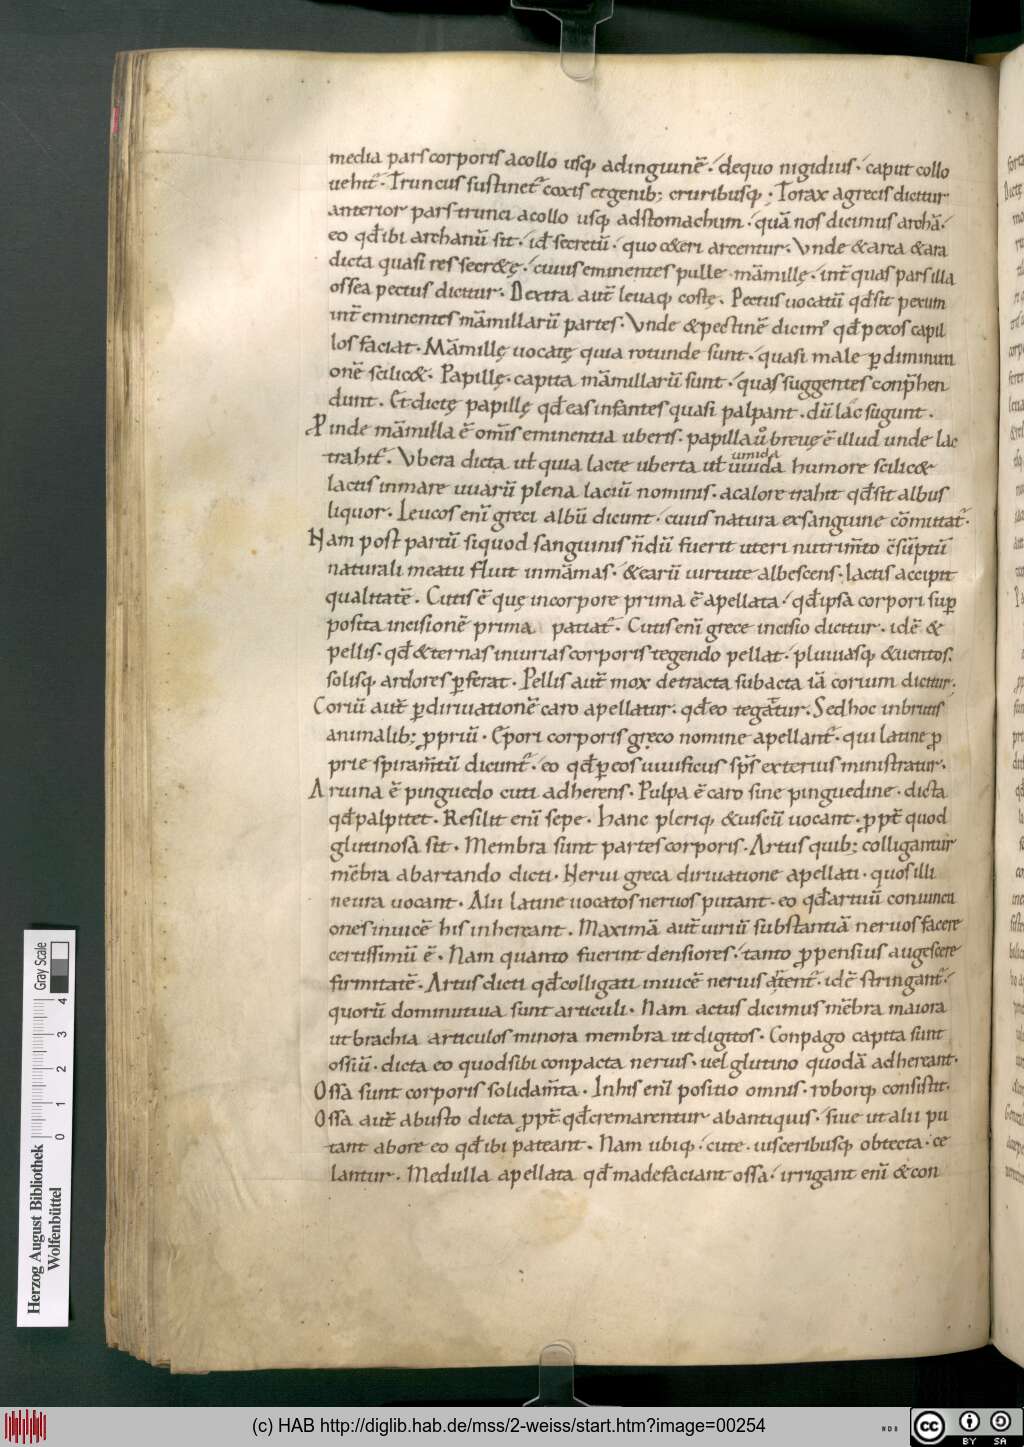 media pars corporis a collo usq; ad inguinē. de quo nigidius. caput collo
uehit᷒. Truncus sustinet᷒ coxis et genib; cruribusq;. Torax a grecis dicitur
anterior pars trunci a collo usq; ad stomachum. quā nos dicimus archā.
eo qđ ibi archanū sit. id ē secretū. quo c&eri arcentur. Vnde & arca & ara
dicta quasi res secr&ę. cuius eminentes pulle māmillę. int̄ quas pars illa
ossea pectus dicitur. Dextra aut̄ leuaq; costę. Pectus uocatū qđ sit pexum
int̄ eminentes māmillarū partes. Vnde & pectinē dicim᷒ qđ pexos capil
los faciat. Māmillę uocatę quia rotunde sunt. quasi male ꝑ diminuti
onē scilic&. Papillę. capita māmillarū sunt. quas suggentes conp̄hen
dunt. Et dictę papillę qđ eas infantes quasi palpant. dū lac sugunt.
Pinde māmilla ē om̄is eminentia uberis. papilla ů breuę ē illud unde lac
trahit᷒. Vbera dicta ut̄ quia lacte uberta ut̄ uuida humore scilic&
umida
lactis in mare uuarū plena laciū nominis. a calore trahit qđ sit albus
liquor. Leucos enī greci albū dicunt. cuius natura ex sanguine cōmutat᷒.
Nam post partū si quod sanguinis n̄dū fuerit uteri nutrim̄to c̄sūptū
naturali meatu fluit in māmas. & earū uirtute albescens. lactis accipit
qualitatē. Cutis ē quę in corpore prima ē apellata. qđ ipsa corpori suꝑ
posita incisionē prima patiat᷒. Cutis enī grece incisio dicitur. idē &
pellis. qđ & ternas iniurias corporis tegendo pellat. pluuiasq; & uentos.
solisq; ardores ꝑferat. Pellis aut̄ mox detracta subacta iā corium dicitur.
Coriū aut̄ ꝑ diriuationē caro apellatur. qđ eo tegatur. Sed hoc in brutis
animalib; ꝓpriū. C̄pori corporis gręco nomine apellant᷒. qui latine ꝓ
prie spiram̄tū dicunt᷒. eo qđ ꝑ eos uiuificus sp̄s exterius ministratur.
Aruina ē pinguedo cuti adherens. Pulpa ē caro sine pinguedine. dicta
qđ palpitet. Resilit enī sepe. hanc pleriq; & uiscū uocant. ꝓpt̄ quod
glutinosa sit. Membra sunt partes corporis. Artus quib; colligantur
m̄bra ab artando dicti. Nerui greca diriuatione apellati. quos illi
neura uocant. Alii latine uocatos neruos putant. eo qđ artuū coniuncti
ones inuicē his inhereant. Maximā aut̄ uiriū substantiā neruos facere
certissimū ē. Nam quanto fuerint densiores. tanto ꝓpensius augescere
firmitatē. Artus dicti qđ colligati inuicē neruis artent᷒. idē stringant᷒.
quorū dominutiua sunt articuli. Nam actus dicimus m̄bra maiora
ut brachia articulos minora membra ut digitos. Conpago capita sunt
ossiū. dicta eo quod sibi conpacta neruis. uel glutino quodā adhereant.
Ossa sunt corporis solidam̄ta. In his enī positio omnis. roborq; consistit.
Ossa aut̄ ab usto dicta ꝓpt̄ qđ cremarentur ab antiquis. siue ut alii pu
tant ab ore eo qđ ibi pateant. Nam ubiq; cute. uisceribusq; obtecta. ce
lantur. Medulla apellata qđ madefaciant ossa. irrigant enī & con
Herzog August Bibliothek
Wolfenbüttel
0 1 2 3 4
Gray Scale
(c) HAB http://diglib.hab.de/mss/2-weiss/start.htm?image=00254
cc BY SA